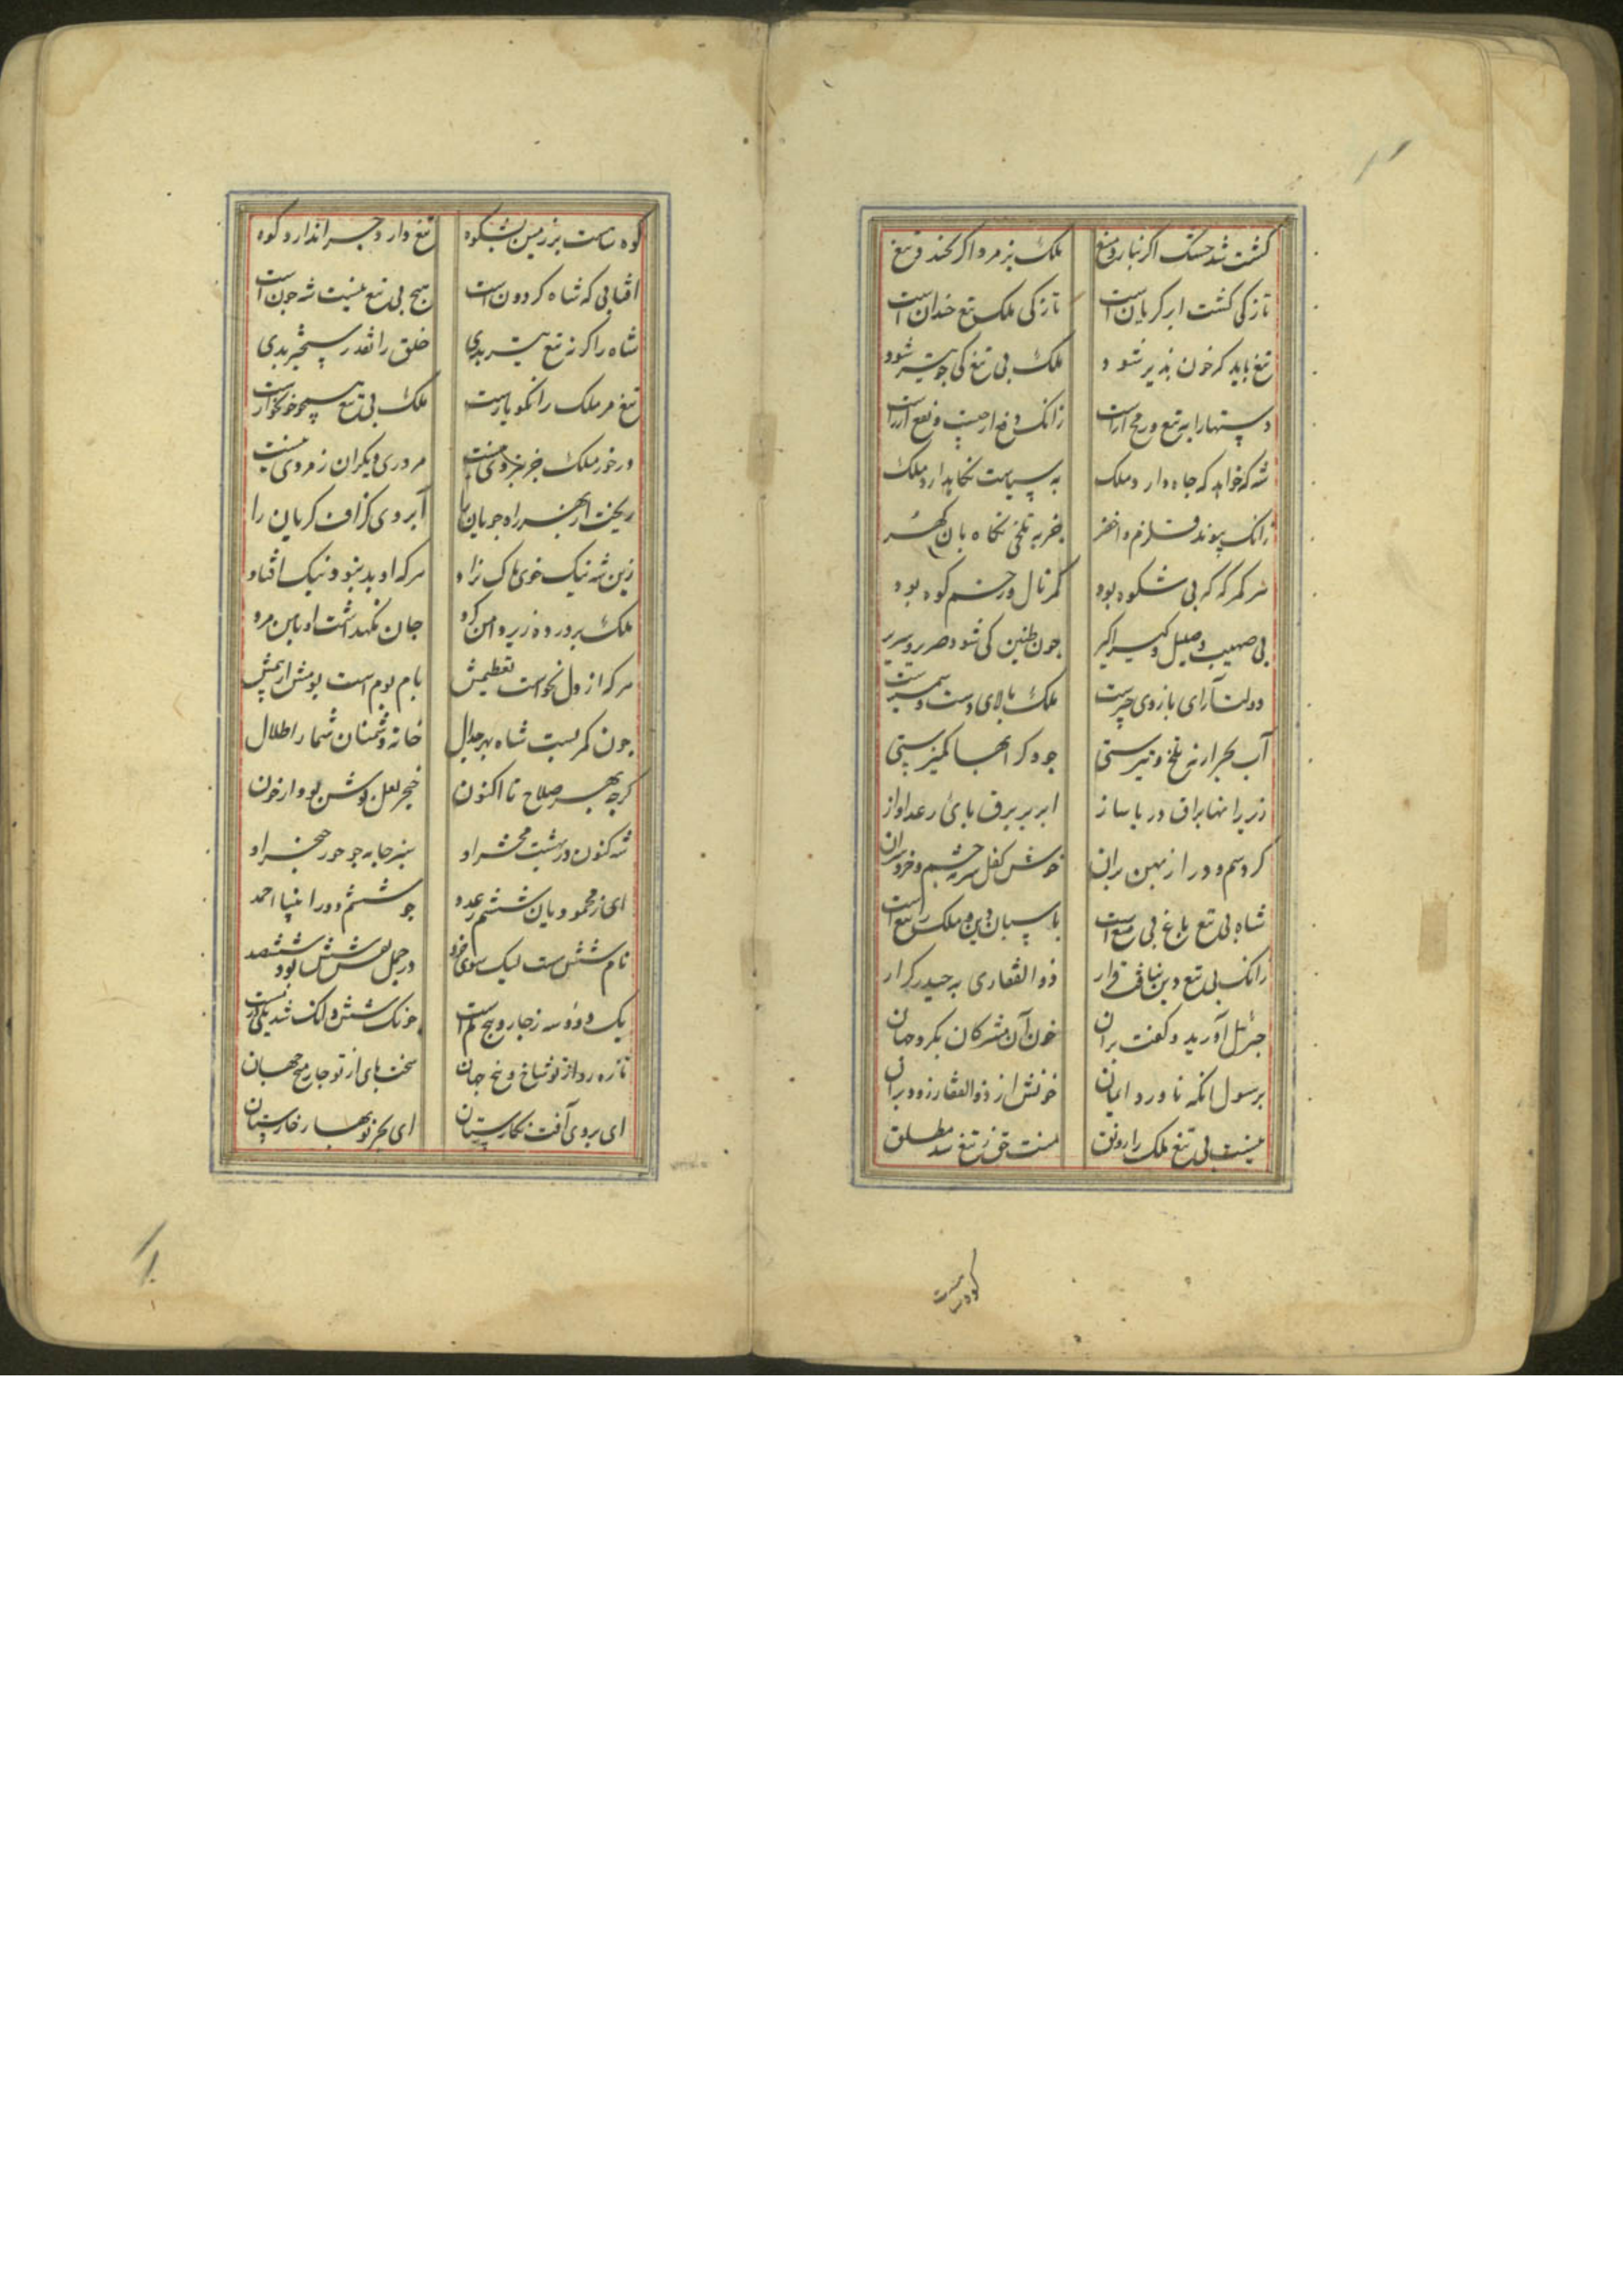 کشت شد خشک اگر نبارد میغ ملک پژمرد اگر نخندد تیغ
تازکی کشت ابر کریان است تازکی ملک تیغ خندان است
تیغ باید کز خون بذیر شود ملک بی تیغ کی جو تیر شود
دستها را به تیغ و رمح آراست زانک دفع از جپست و نفع از راست
شه که خواهد که جاه دارد و ملک به سیاست نکاه دارد ملک
زانک پیوند قلزم و اخضر جز به تلخی نکاه بان کهر
سر کمر که که بی شکوه بود کمر نال و رسم کوه بود
بی صهیب و صلیل و کیراکیر جون طنین کی شود صریر و سریر
دولت آرای بازوی جیرست ملک بالای دست و شمشیرست
آب بحر ار نه تلخ و تیرستی جود کر انجا کمیزستی
زیر رانها براق دریا ساز ابر بر برق بای رعد اواز
کرد سم و دراز بهن بران خوش کفل سرمه جشم و خرد سران
شاه بی تیغ باغ بی میغ است باسبان دین و ملک را تیغ است
زانک بی تیغ دین نیافت قرار ذوالفقاری به حیدر کرار
جبرئیل آورید و کفت بران خون آن مشرکان بکرد جهان
بر رسول انکه ناورد ایمان خونش از ذوالفقار زود بران
نیست بی تیغ ملک را رونق هست حق ز تیغ شد مطلق
کوه راست
کوه راست بر زمین بشکوه تیغ دارد جرا ندارد کوه
افتابی که شاه کردون است هیج بی تیغ نیست شه جون است
شاه را کر نه تیغ تیز بدی خلق را نقد رستخیز بدی
تیغ مر ملک را نکو یارست ملک بی تیغ همجو خونخوارست
در خور ملک جز بزوی نیست مر دری دیکران ز مروی نیست
ریخت از بهر راه جویان را آبروی کزاف کویان را
زین شه نیک خوی باک نژاد هرکه او بد نبود نیک افتاد
ملک برورده زیر دامن کرد جان نکهداشت او بامن مرد
هرکه از دل نخواست تعظیمش بام بوم است بومش از بیمش
جون کمر بست شاه بهر جدال خانه دشمنان شمار اطلال
کرجه بهر صلاح تا اکنون خنجر لعل بوشش بود از خون
شه کنون در بهشت محشر او سبز جامه جو حور خنجر او
ای ز محمودیان ششم ز عدد جو ششم دور انبیا احمد
نام شش ست لیک سوی خرد در جمل نقش شش بود ششصد
یک و دو و سه ز جار و بنج کم است جونک شش و انک شد یکی رست
تازه رو از تو شاخ و بیخ جهان سخت بای از تو جار میخ جهان
ای بروی آفت نکارستان ای بجز نوبهار خارستان